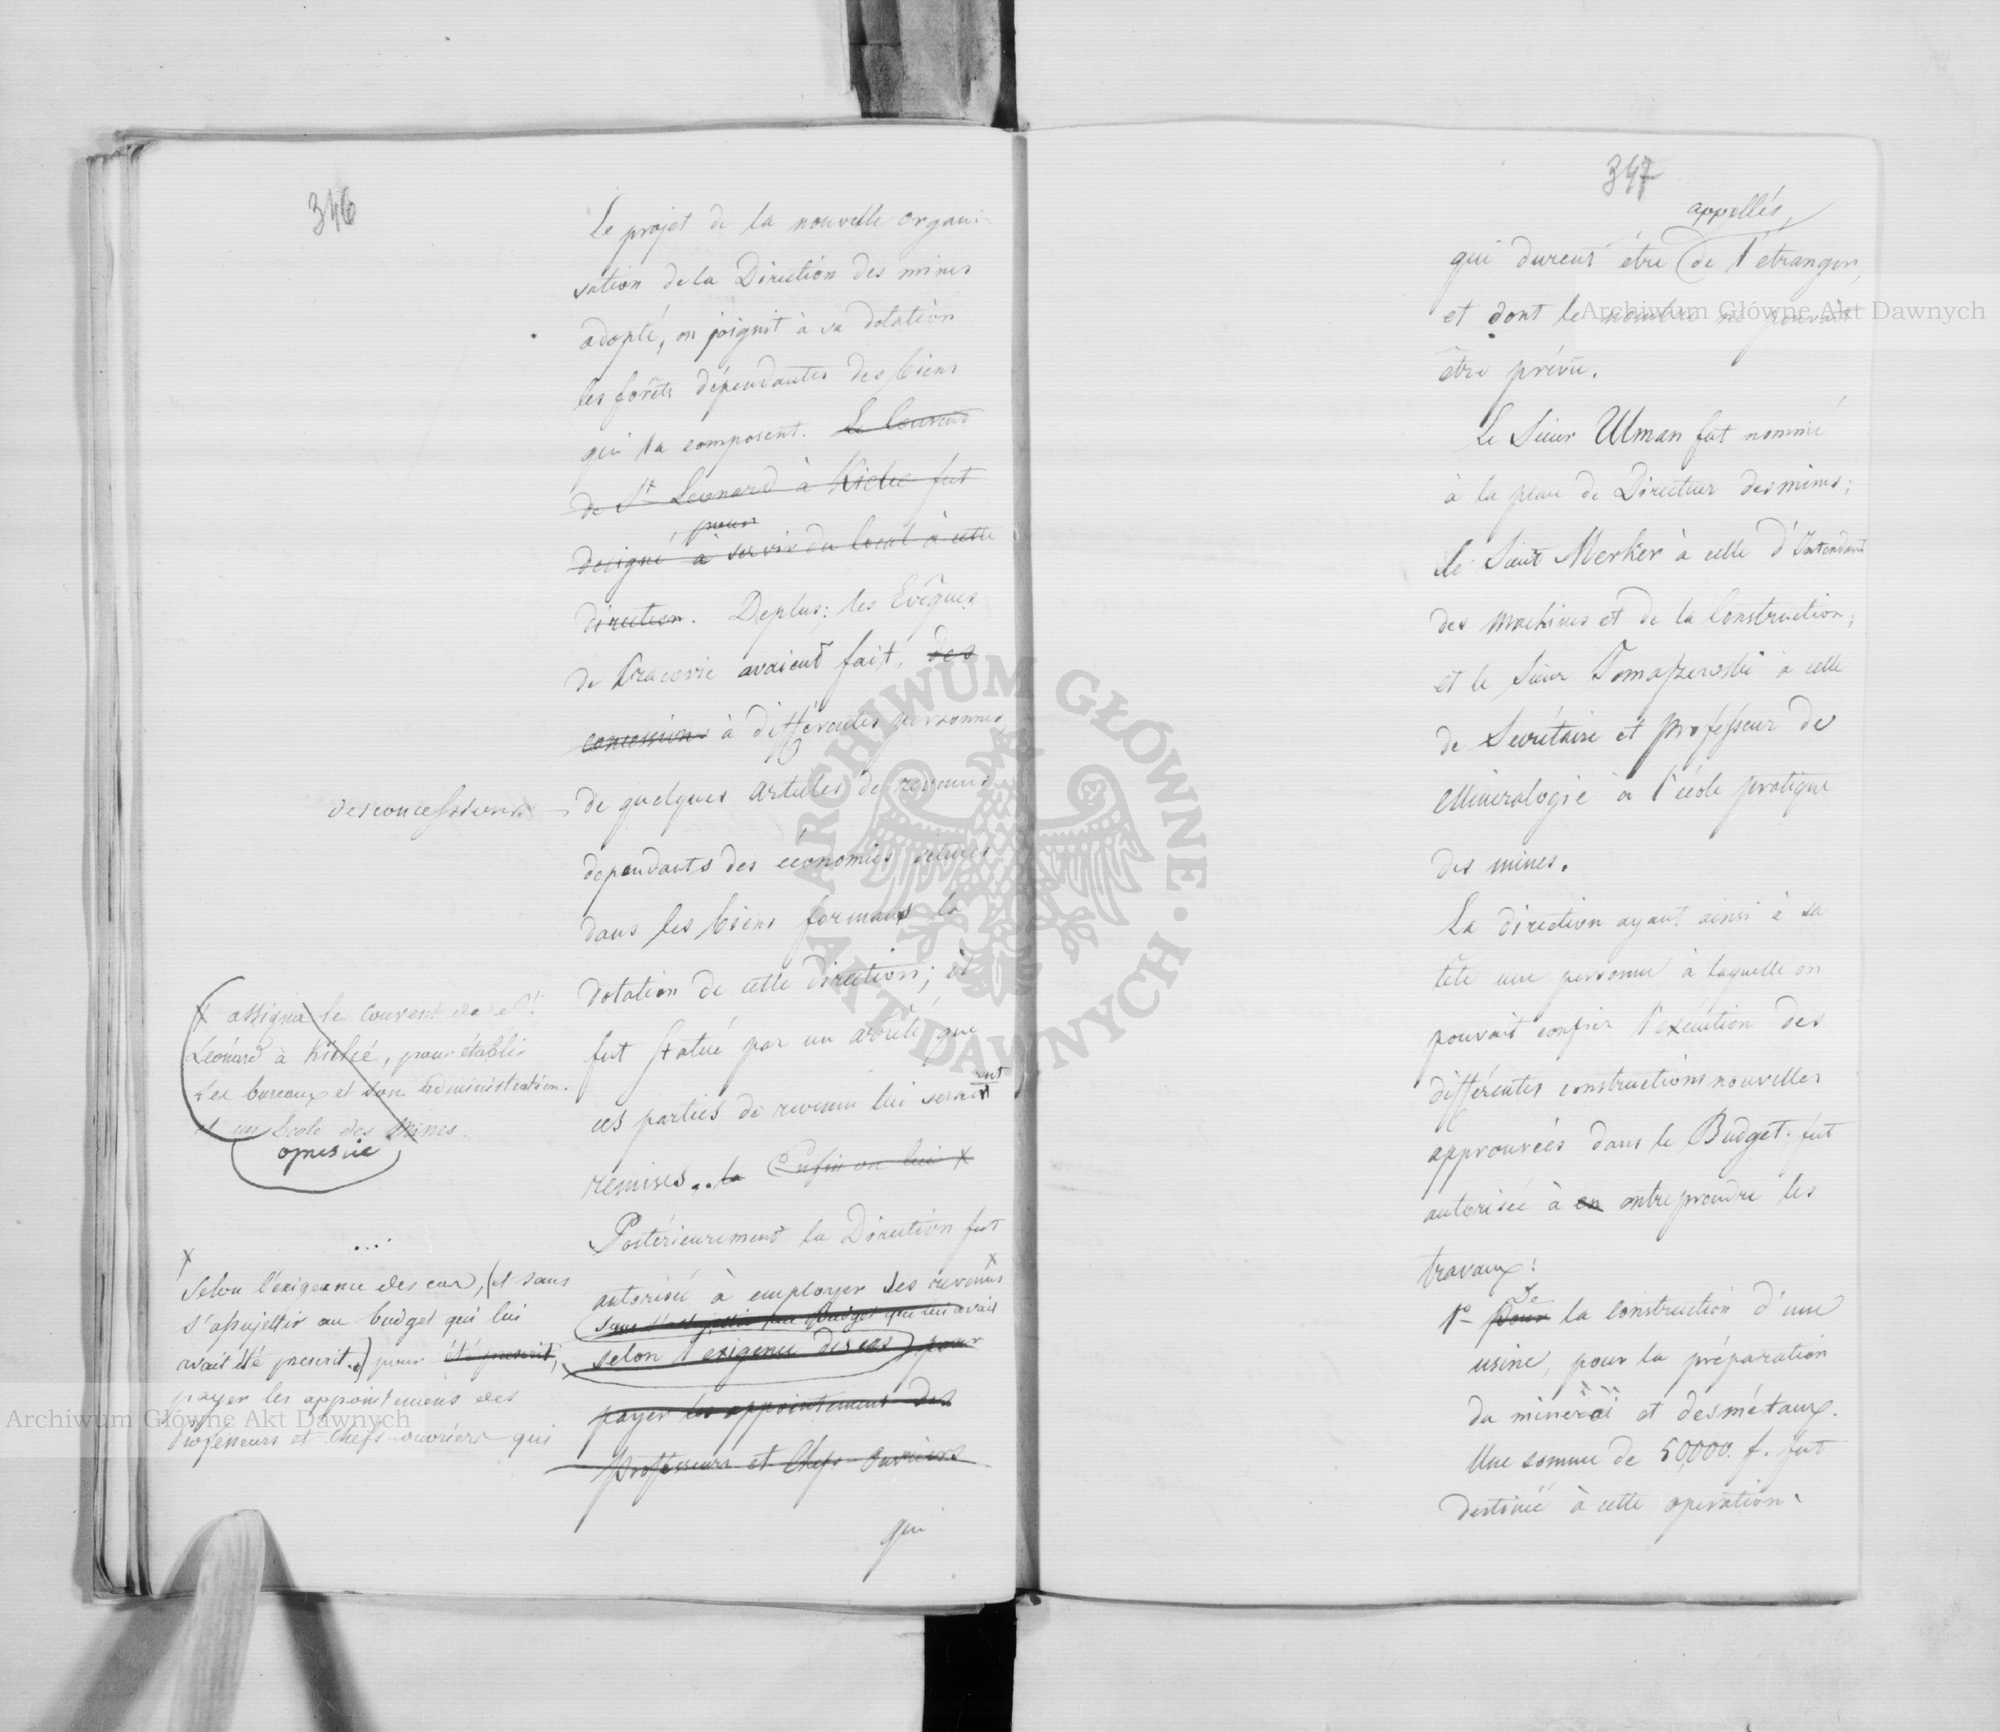 346
Le projet de la nouvelle organi-
sation de la Direction des mines
adopté, on joignit à sa dotation
les forêts dépendantes des biens
qui la composent. Le Couvent
de St Leonard à Kielce fut
pour
designé à servir du local à cette
direction. Deplus: les Evêques
de Cracovie avaient fait, des
concessions à différentes personnes,
des concessions
de quelques articles de revenus
dependants des économies situées
dans les biens formants la
dotation de cette direction; il
fut statué par un arrêté, que
ces parties de revenu lui seraient
remises. la Enfin on lui X
X assigna le Couvent de St.
Leonard à Kielcé, pour établir
ses bureaux et son administration.
et un Ecole des Mines.
opuscic
Postérieurement la Direction fut
autorisée à employer ses revenus X
sans s'assujettir au Budget que lui avait
selon l'exigence des cas, pour
payer les appointemens des
professeurs et Chefs-ouvriers
X
selon l'exigeance des cas, (et sans
s'assujettir au budget qui lui
avait été prescrit.) pour été prescrit,
payer les appointemens des
professeurs et Chefs-ouvriers qui
qui
347
appellés,
qui durent être de l'étranger,
et dont le nombre ne pouvait
être prévu.
Le Sieur Ulman fut nommé
à la place de Directeur des mines;
le Sieur Merker à celle d'Intendant
des machines et de la Construction;
et le Sieur Tomaszewski à celle
de Secrétaire et professeur de
Minéralogie à l'école pratique
des mines.
La direction ayant ainsi à sa
tête une personne à laquelle on
pouvait confier l'exécution des
différentes constructions nouvelles
approuvées dans le Budget; fut
autorisée à en entreprendre les
travaux:
De
1º Pour la construction d'une
usine, pour la préparation
du minerai et des métaux.
Une somme de 50,000. f. fut
destinée à cette operation.
Archiwum Główne Akt Dawnych
Archiwum Główne Akt Dawnych
ARCHIWUM GŁÓWNE · AKT DAWNYCH ·